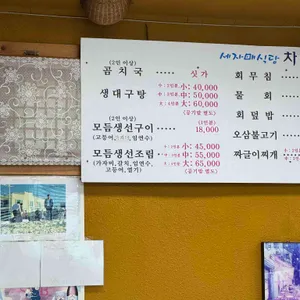 세자매식당 차
(2인 이상)
곰 치 국 ····· 싯가
생 대 구 탕 小: 40,000
中: 50,000
大: 60,000
(공기밥 별도)
(2인 이상) (1인분)
모듬생선구이 ···· 18,000
(고등어, 임연수)
모듬생선조림 小: 45,000
(가자미,갈치,임연수, 中: 55,000
고등어,열기) 大: 65,000
(공기밥 별도)
회 무 침
물 회
회 덮 밥
오삼불고기
짜글이찌개